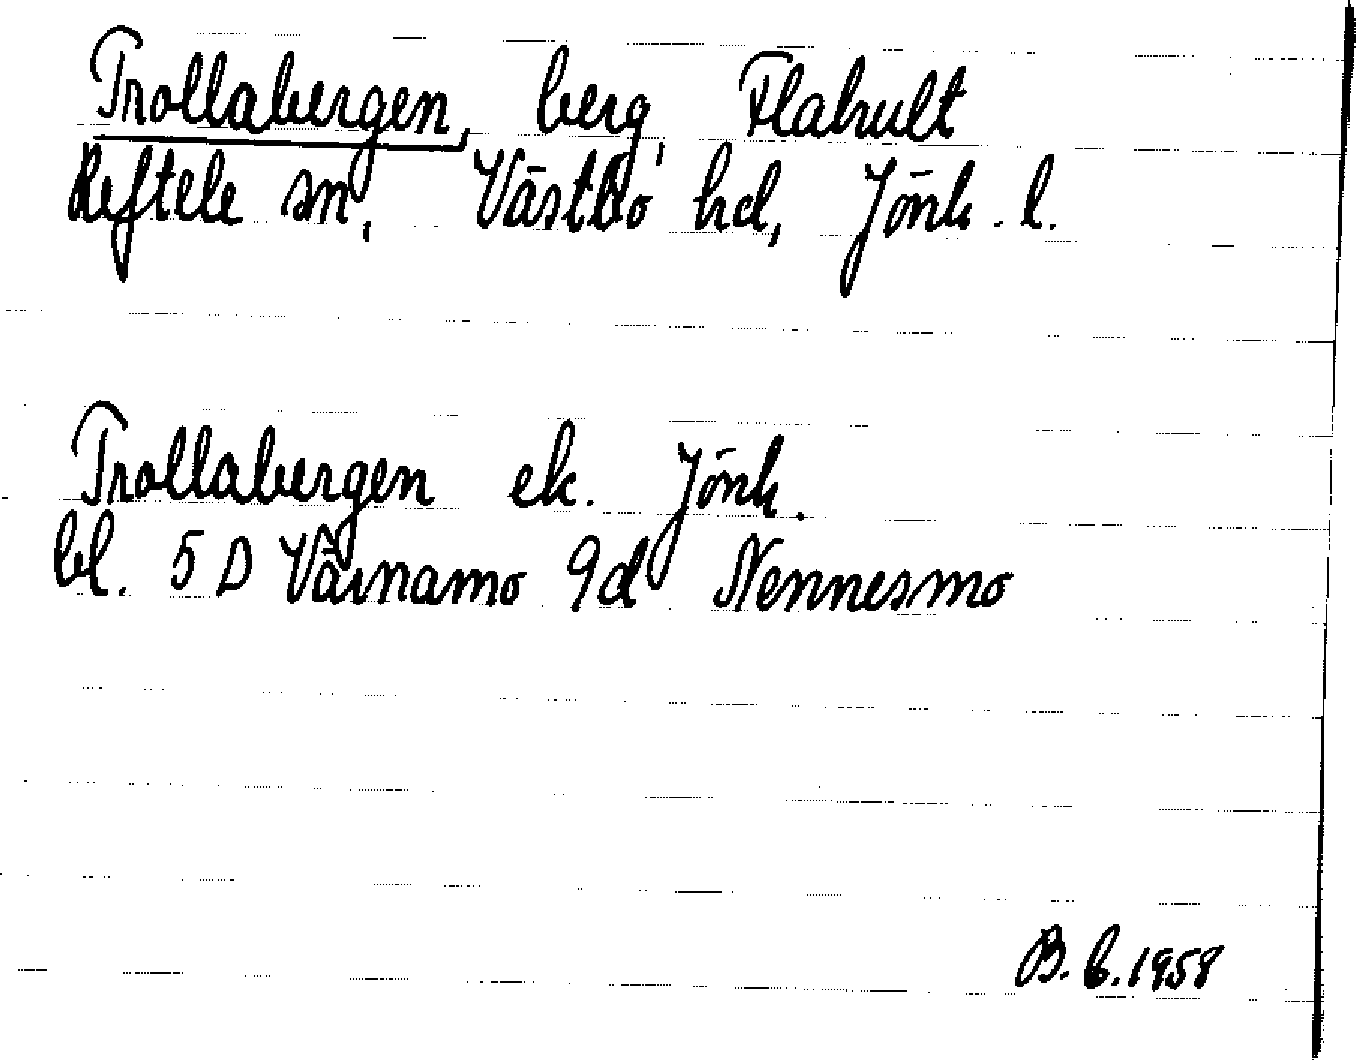 Trollabergen, berg, Flahult
Reftele sn, Västbo hd, Jönk. l.
Trollabergen ek. Jönk.
bl. 5 D Värnamo 9d Nennesmo
B. E. 1958